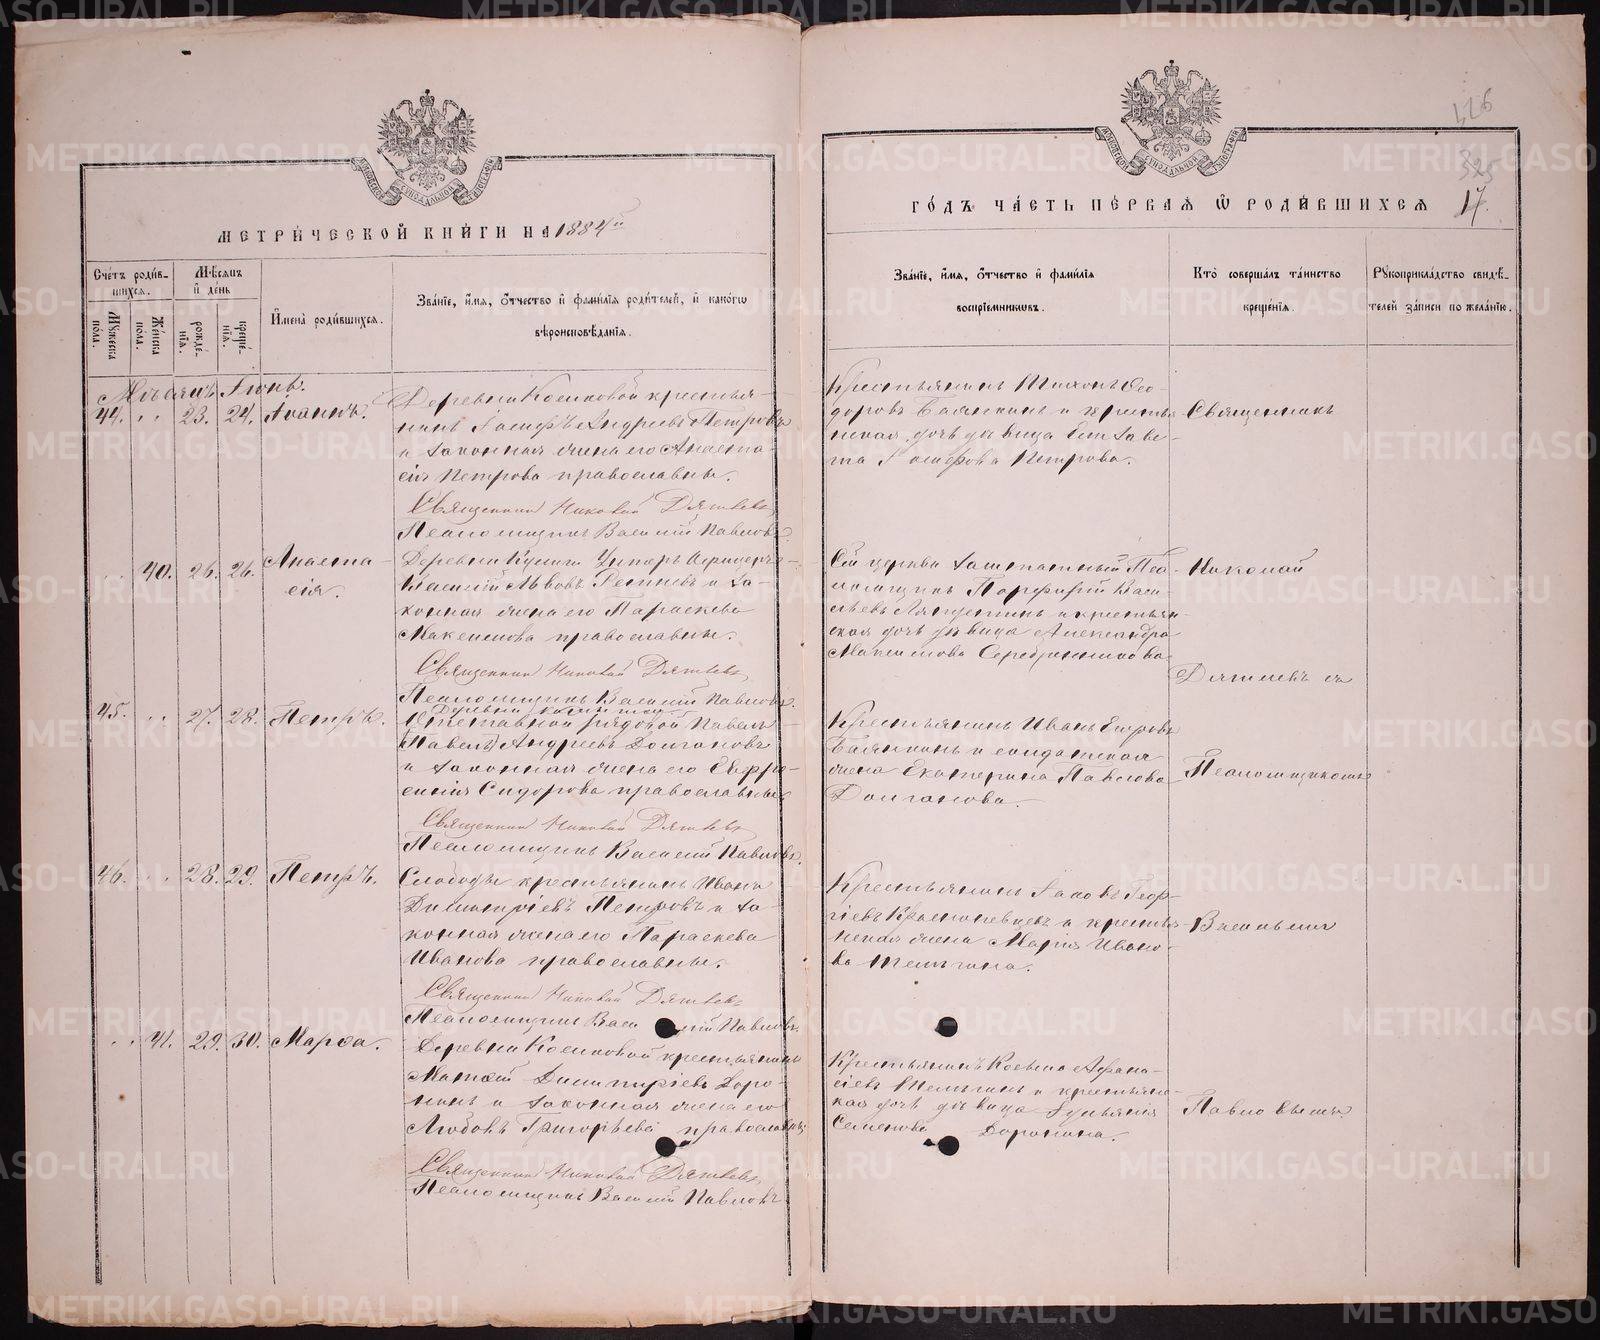 МЕТРИ́ЧЕСКОЙ КНИ́ГИ НА 1884й
ГО́ДЪ ЧА́СТЬ ПЕ́РВАЯ Ѡ РОДИ́ВШИХСЯ
17.
426
325
Сче́тъ роди́в-
шихся.
Мѣ́сяцъ
и҆ де́нь
Му́жеска
по́ла.
Же́нска
по́ла.
рожде́-
нїя.
креще́-
нїя.
И҆мена̀ роди́вшихся.
Зва́нїе, и҆́мя, ѻ҆́тчество и҆ фами́лїя роди́телей, и҆ како́гѡ
вѣроисповѣ́данїя.
Зва́нїе, и҆́мя, ѻ҆́тчество и҆ фами́лїя
воспрїе́мникѡвъ.
Кто̀ соверша́лъ та́инство
креще́нїя.
Рꙋкоприкла́дство свидѣ́-
телей за́писи по жела́нїю.
Мѣсяцъ Іюнь.
44. " " 23. 24. Іоаннъ.
Деревни Косиковой крестья-
нинъ Іосифъ Андреевъ Петровъ
и законная жена его Анаста-
сія Петрова православны.
Священникъ Николай Дягилевъ
Псаломщикъ Василій Павловъ.
Крестьянинъ Тихонъ Ѳео-
доровъ Балякинъ и крестья-
нская дочь дѣвица Елизаве-
та Іосифова Петрова.
Священникъ
" " 40. 26. 26. Анаста-
сія.
Василій Львовъ
и за-
конная жена его Параскева
Максимова православны.
Священникъ Николай Дягилевъ
Псаломщикъ Василій Павловъ.
Сей церкви заштатный Пса-
ломщикъ Порфирій Васи-
льевъ Ляпустинъ и крестьян-
ская дочь дѣвица Александра
Максимова Серебренникова
Николай
Дягилевъ съ
45. " " 27. 28. Петръ.
Отставной рядовой Павелъ
Павелъ Андреевъ Долгановъ
и законная жена его Евфро-
синія Сидорова православны.
Священникъ Николай Дягилевъ
Псаломщикъ Василій Павловъ.
Крестьянинъ Иванъ Егоровъ
Балякинъ и солдатская
жена Екатерина Павлова
Долганова.
Псаломщикомъ
46. " " 28. 29. Петръ.
Слободы крестьянинъ Иванъ
Димитріевъ Петровъ и за-
конная жена его Параскева
Иванова православны.
Священникъ Николай Дягилевъ
Псаломщикъ Василій Павловъ.
Крестьянинъ Іаковъ Геор-
гіевъ Красноперцевъ и крестья-
нская жена Марія Ивано-
ва Телегина.
Васильемъ
" " 41. 29. 30. Марѳа.
Деревни Косиковой крестьянинъ
Матѳей Димитріевъ Доро-
нинъ и законная жена его
Любовь Григорьева православны.
Священникъ Николай Дягилевъ
Псаломщикъ Василій Павловъ.
Крестьянинъ Косьма Аѳана-
сіевъ Телегинъ и крестьян-
ская дочь дѣвица Іуліанія
Семенова Доронина.
Павловымъ
METRIKI.GASO-URAL.RU